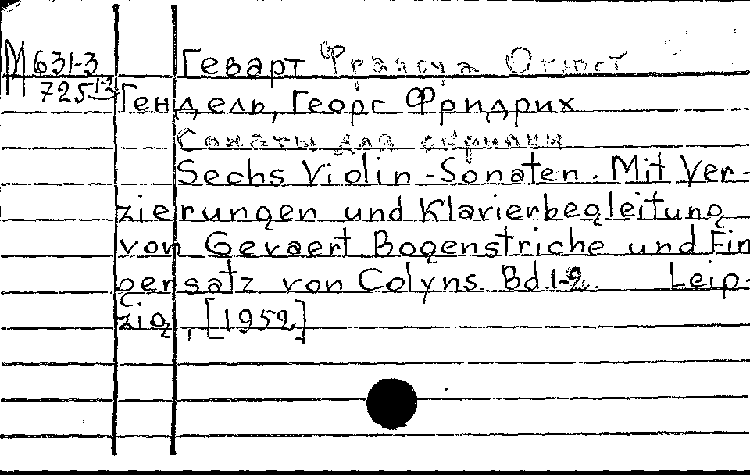 М 631-3 Геварт Франсуа Огюст
725 1-2 Гендель, Георг Фридрих
Сонаты для скрипки
Sechs Violin-Sonaten. Mit Ver-
zierungen und Klavierbegleitung
von Gevaert Bogenstriche und Fin
gersatz von Colyns. Bd.1-2. Leip-
zig, [1952]